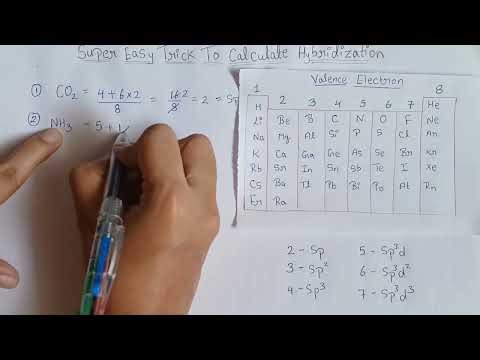 Super Easy Trick To Calculate Hybridization
① CO₂ = 4+6×2 / 8 = 16 2 / 8 = 2 = Sp
② NH₃ = 5+1
Valence Electron
1 2 3 4 5 6 7 8
H He
Li Be B C N O F Ne
Na Mg Al Si P S Cl Ar
K Ca Ga Ge As Se Br Kr
Rb Sr In Sn Sb Te I Xe
Cs Ba Tl Pb Bi Po At Rn
Fr Ra
2 - Sp 5 - Sp³d
3 - Sp² 6 - Sp³d²
4 - Sp³ 7 - Sp³d³